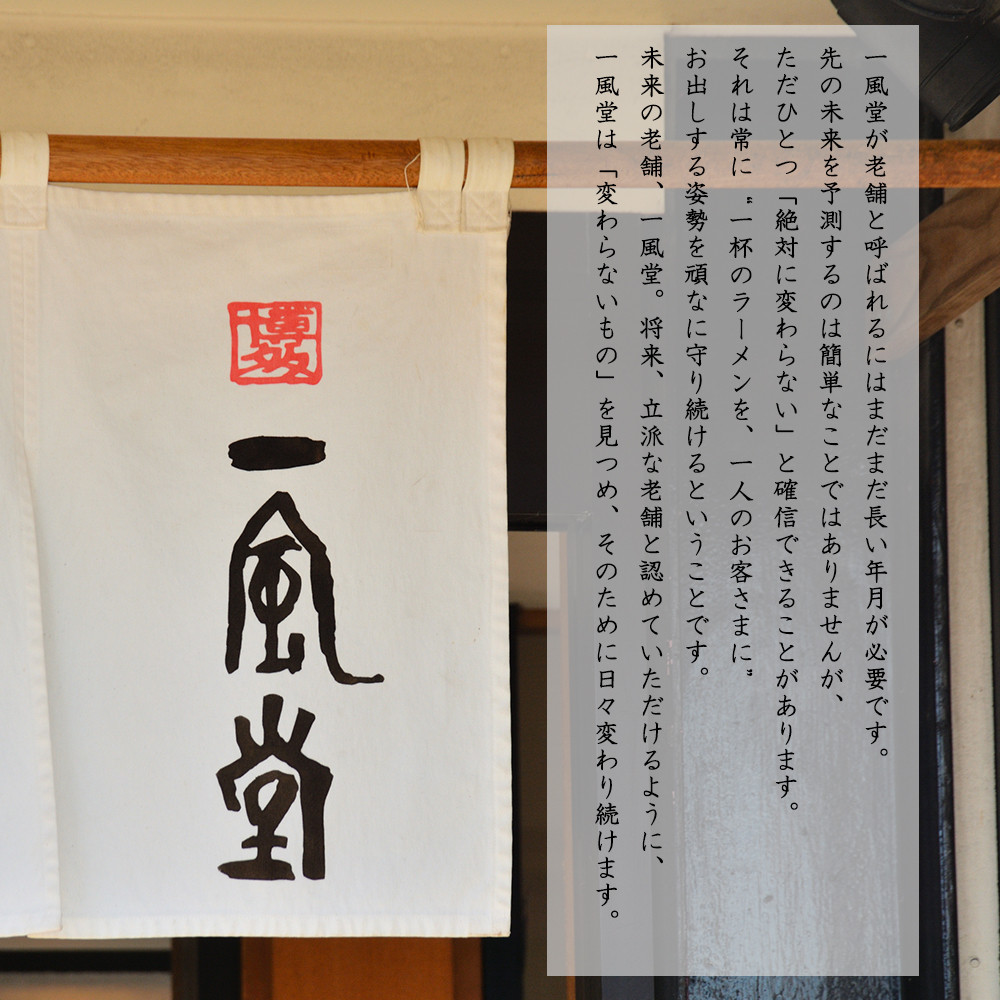 博多
一風堂
一風堂が老舗と呼ばれるにはまだまだ長い年月が必要です。
先の未来を予測するのは簡単なことではありませんが、
ただひとつ「絶対に変わらない」と確信できることがあります。
それは常に〝一杯のラーメンを、一人のお客さまに〟
お出しする姿勢を頑なに守り続けるということです。
未来の老舗、一風堂。将来、立派な老舗と認めていただけるように、
一風堂は「変わらないもの」を見つめ、そのために日々変わり続けます。